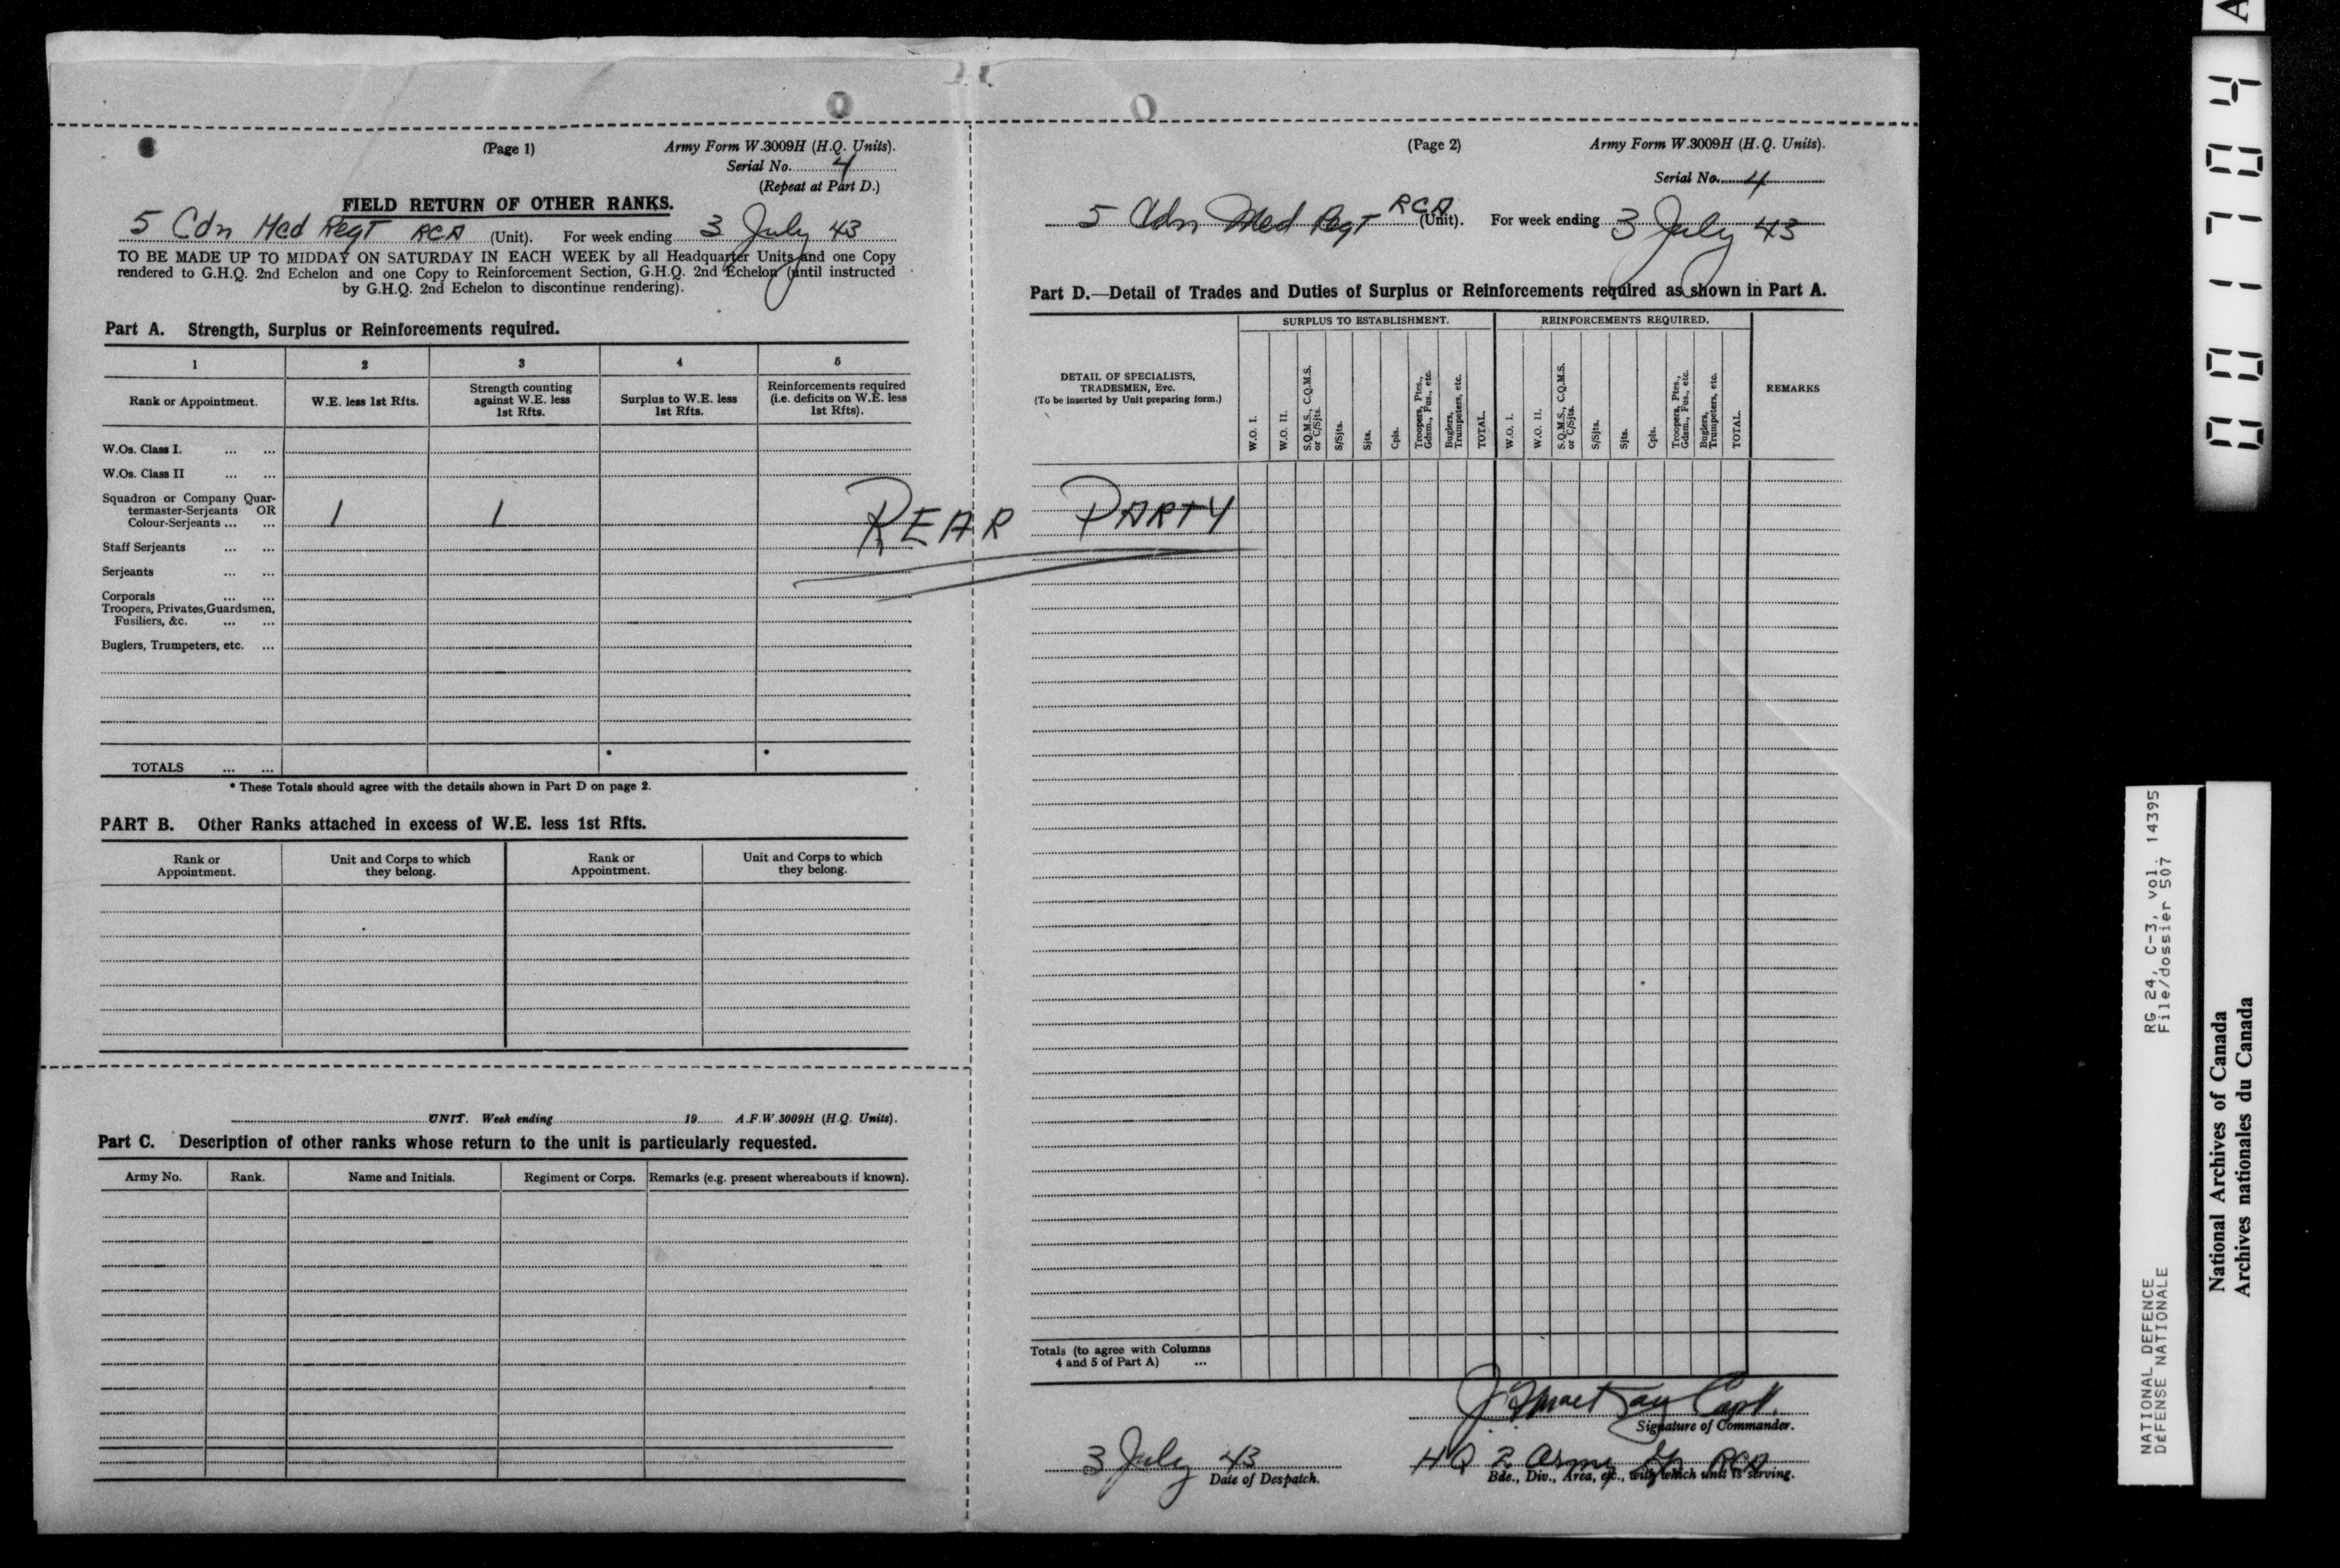 (Page 1)
Army Form W.3009H (H.Q. Units).
Serial No. 4
(Repeat at Part D.)
FIELD RETURN OF OTHER RANKS.
5 Cdn Med Regt RCA (Unit). For week ending 3 July 43
TO BE MADE UP TO MIDDAY ON SATURDAY IN EACH WEEK by all Headquarter Units and one Copy
rendered to G.H.Q. 2nd Echelon and one Copy to Reinforcement Section, G.H.Q. 2nd Echelon (until instructed
by G.H.Q. 2nd Echelon to discontinue rendering).
Part A. Strength, Surplus or Reinforcements required.
1 2 3 4 5
Rank or Appointment.
W.E. less 1st Rfts.
Strength counting
against W.E. less
1st Rfts.
Surplus to W.E. less
1st Rfts.
Reinforcements required
(i.e. deficits on W.E. less
1st Rfts).
W.Os. Class I. ... ...
W.Os. Class II ... ...
Squadron or Company Quar-
termaster-Serjeants OR
Colour-Serjeants ... ... 1 1
Staff Serjeants ... ...
Serjeants ... ...
Corporals ... ...
Troopers, Privates, Guardsmen,
Fusiliers, &c. ... ...
Buglers, Trumpeters, etc. ...
TOTALS ... ... • •
REAR PARTY
• These Totals should agree with the details shown in Part D on page 2.
PART B. Other Ranks attached in excess of W.E. less 1st Rfts.
Rank or
Appointment.
Unit and Corps to which
they belong.
Rank or
Appointment.
Unit and Corps to which
they belong.
UNIT. Week ending 19 A.F.W.3009H (H.Q. Units).
Part C. Description of other ranks whose return to the unit is particularly requested.
Army No. Rank. Name and Initials. Regiment or Corps. Remarks (e.g. present whereabouts if known).
(Page 2)
Army Form W.3009H (H.Q. Units).
Serial No. 4
5 Cdn Med Regt RCA (Unit). For week ending 3 July 43
Part D.—Detail of Trades and Duties of Surplus or Reinforcements required as shown in Part A.
DETAIL OF SPECIALISTS,
TRADESMEN, Etc.
(To be inserted by Unit preparing form.)
SURPLUS TO ESTABLISHMENT.
W.O. I.
W.O. II.
S.Q.M.S., C.Q.M.S.
or C/Sjts.
S/Sjts.
Sjts.
Cpls.
Troopers, Ptes.,
Gdsm., Fus., etc.
Buglers,
Trumpeters, etc.
TOTAL.
REINFORCEMENTS REQUIRED.
W.O. I.
W.O. II.
S.Q.M.S., C.Q.M.S.
or C/Sjts.
S/Sjts.
Sjts.
Cpls.
Troopers, Ptes.,
Gdsm., Fus., etc.
Buglers,
Trumpeters, etc.
TOTAL.
REMARKS
Totals (to agree with Columns
4 and 5 of Part A) ...
Capt.
Signature of Commander.
3 July 43
Date of Despatch.
HQ 2 Army Gp RCA
Bde., Div., Area, etc., with which unit is serving.
001704
A
RG 24, C-3, vol. 14395
File/dossier 507
NATIONAL DEFENCE
DÉFENSE NATIONALE
National Archives of Canada
Archives nationales du Canada